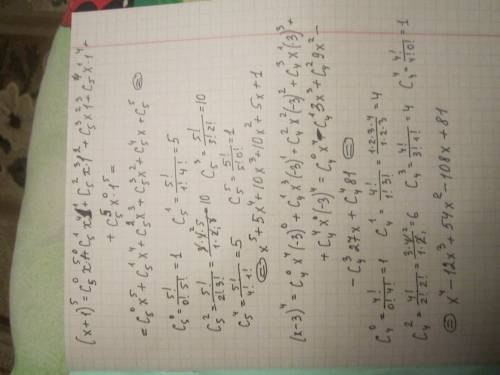 (x+1)⁵ = C₅⁰x⁵1⁰ + C₅¹x⁴1¹ + C₅²x³1² + C₅³x²1³ + C₅⁴x¹1⁴ +
+ C₅⁵x⁰1⁵ =
= C₅⁰x⁵ + C₅¹x⁴ + C₅²x³ + C₅³x² + C₅⁴x + C₅⁵ =
C₅⁰ = 5!/0!5! = 1 C₅¹ = 5!/1!4! = 5
C₅² = 5!/2!3! = 10 C₅³ = 5!/3!2! = 10
C₅⁴ = 5!/4!1! = 5 C₅⁵ = 5!/5!0! = 1
= x⁵ + 5x⁴ + 10x³ + 10x² + 5x + 1
(x-3)⁴ = C₄⁰x⁴(-3)⁰ + C₄¹x³(-3)¹ + C₄²x²(-3)² + C₄³x¹(-3)³ +
+ C₄⁴x⁰(-3)⁴ = C₄⁰x⁴ - C₄¹3x³ + C₄²9x² -
- C₄³27x + C₄⁴81 =
C₄⁰ = 4!/0!4! = 1 C₄¹ = 4!/1!3! = 1·2·3·4/1·2·3 = 4
C₄² = 4!/2!2! = 6 C₄³ = 4!/3!1! = 4 C₄⁴ = 4!/4!0! = 1
= x⁴ - 12x³ + 54x² - 108x + 81